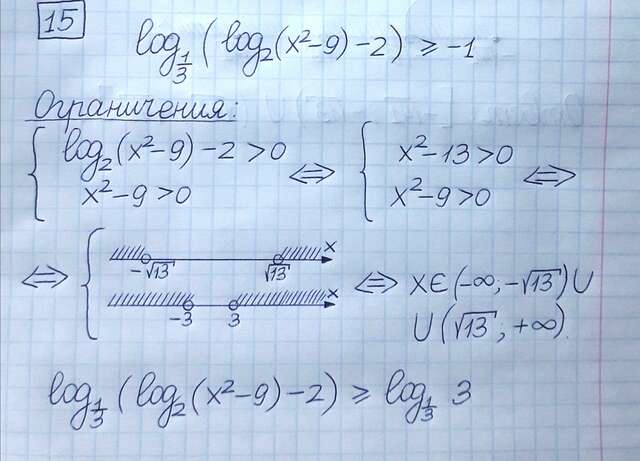 15
log_{1/3} (log₂(x²-9)-2) ≥ -1
Ограничения:
{ log₂(x²-9)-2>0 ⇔ { x²-13>0 ⇔
x²-9>0 x²-9>0
⇔ { -√13 √13 x
-3 3 x
⇔ x∈(-∞;-√13)∪
∪(√13;+∞).
log_{1/3} (log₂(x²-9)-2) ≥ log_{1/3} 3